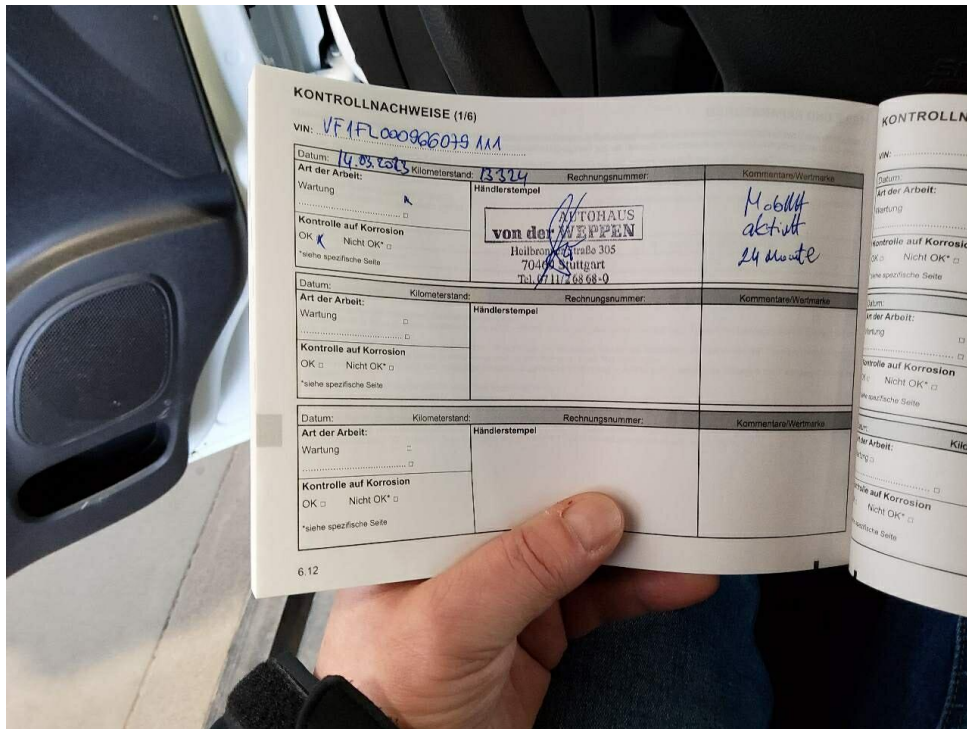 KONTROLLNACHWEISE (1/6)
VIN: VF1FL000966079111
Datum: 14.03.2023 Kilometerstand: 13324 Rechnungsnummer: Kommentare/Wertmarke
Art der Arbeit:
Wartung
Kontrolle auf Korrosion
OK x Nicht OK*
*siehe spezifische Seite
Händlerstempel
AUTOHAUS
von der WEPPEN
Heilbronner Straße 305
70469 Stuttgart
Tel. 0711/2 68 68-0
aktivit
24 Monate
Datum: Kilometerstand: Rechnungsnummer: Kommentare/Wertmarke
Art der Arbeit:
Wartung
Kontrolle auf Korrosion
OK Nicht OK*
*siehe spezifische Seite
Händlerstempel
Datum: Kilometerstand: Rechnungsnummer: Kommentare/Wertmarke
Art der Arbeit:
Wartung
Kontrolle auf Korrosion
OK Nicht OK*
*siehe spezifische Seite
Händlerstempel
6.12
KONTROLLN
VIN:
Datum:
Art der Arbeit:
Wartung
Kontrolle auf Korrosion
Nicht OK*
siehe spezifische Seite
Datum:
der Arbeit:
Kontrolle auf Korrosion
Nicht OK*
spezifische Seite
der Arbeit:
auf Korrosion
Nicht OK*
spezifische Seite